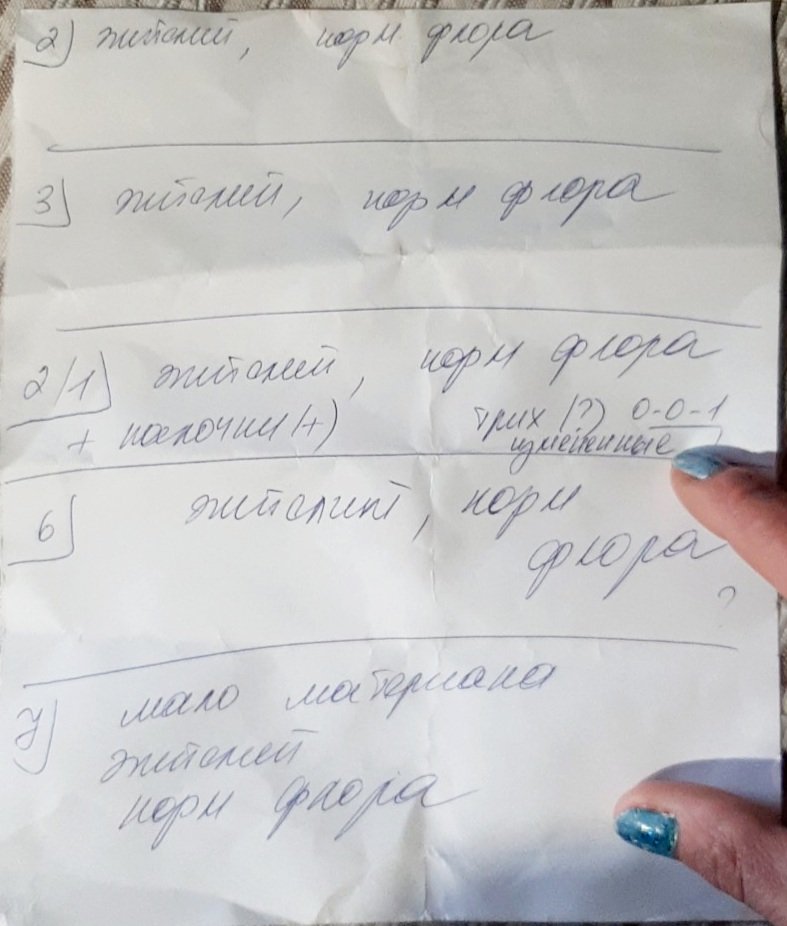 2) эпителий, норм флора
3) эпителий, норм флора
2/1) эпителий, норм флора
+ палочки (+) трих (?) 0-0-1
измененные
6) эпителий, норм
флора
?
7) мало материала
эпителий
норм флора